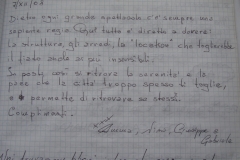 Dietro ogni grande spettacolo c'è sempre una
sapiente regia. Qui tutto è diretto a dovere:
la struttura, gli arredi, la "location" che toglierebbe
il fiato anche ai più insensibili.
In posti così si ritrova la serenità e la
pace che la città troppo spesso ci toglie,
e permette di ritrovare se stessi.
Complimenti.
Giuseppe e
Gabriele